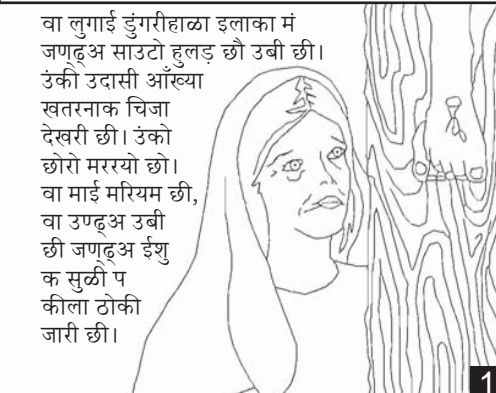 वा लुगाई डुंगरीहाळा इलाका मं
जण्ढ्अ साउटो हुलड़ छौ उबी छी।
उंकी उदासी आँख्या
खतरनाक चिजा
देखरी छी। उंको
छोरो मररयो छो।
वा माई मरियम छी,
वा उण्ढ्अ उबी
छी जण्ढ्अ ईशु
क सुळी प
कीला ठोकी
जारी छी।
1